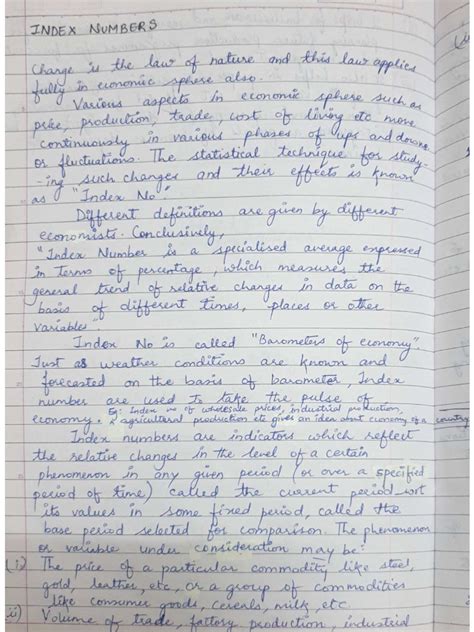 INDEX NUMBERS
Change is the law of nature and this law applies
fully in economic sphere also.
Various aspects in economic sphere such as
price, production, trade, cost of living etc move
continuously in various phases of ups and downs
or fluctuations. The statistical technique for study-
-ing such changes and their effects is known
as "Index No".
Different definitions are given by different
economists. Conclusively,
"Index Number is a specialised average expressed
in terms of percentage, which measures the
general trend of relative changes in data on the
basis of different times, places or other
variables".
Index No is called "Barometers of economy"
Just as weather conditions are known and
forecasted on the basis of barometer, Index
number are used to take the pulse of
economy. Eg: Index no of wholesale prices, industrial production,
& agricultural production etc gives an idea about economy of a country
Index numbers are indicators which reflect
the relative changes in the level of a certain
phenomenon in any given period (or over a specified
period of time) called the current period wrt
its values in some fixed period, called the
base period selected for comparison. The phenomenon
or variable under consideration may be:
(i) The price of a particular commodity like steel,
gold, leather, etc, or a group of commodities
like consumer goods, cereals, milk, etc.
ii) Volume of trade, factory production, industrial